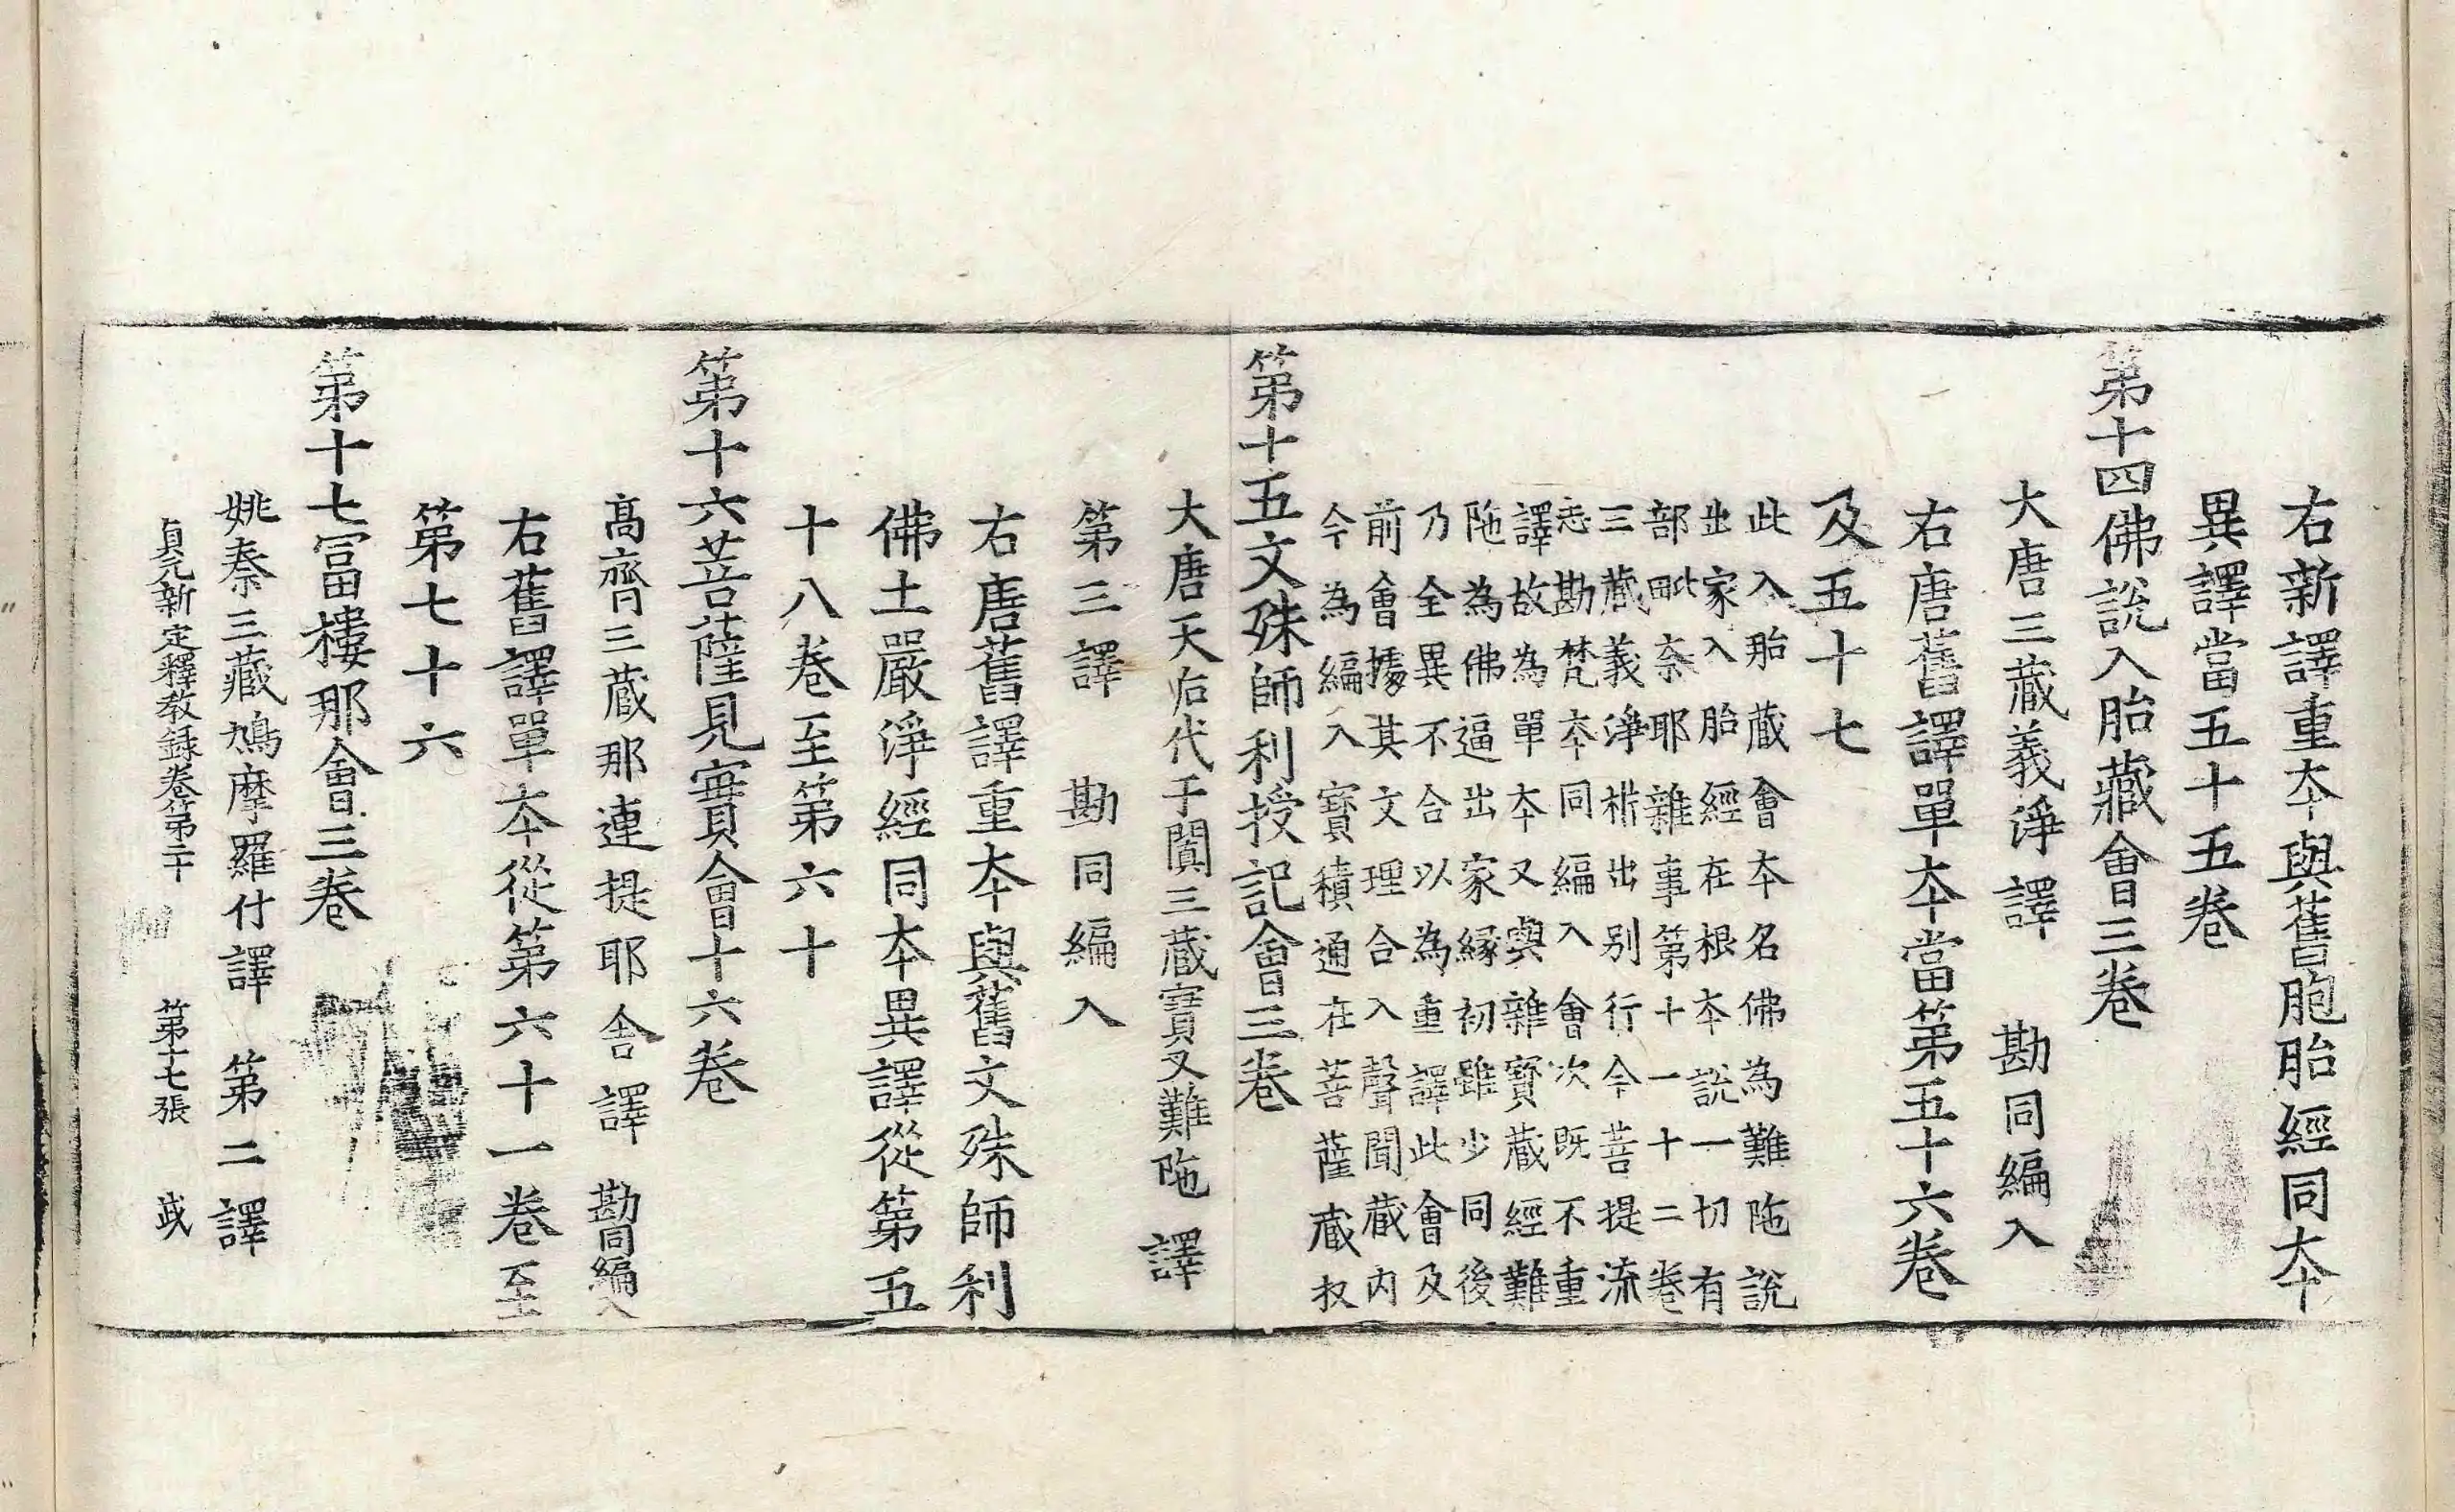 右新譯重夲與舊胞胎經同夲
異譯當五十五卷
第十四佛說入胎藏會三卷
大唐三藏義淨譯 勘同編入
右唐舊譯單夲當第五十六卷
及五十七
此入胎藏會本名佛為難陁說
出家入胎經在根本說一切有
部毗奈耶雜事第十一十二卷
三藏義淨析出別行今菩提流
志勘梵夲同編入會次既不重
譯故為單本又與雜寶藏經難
陁為佛逼出家緣初雖少同後
乃全異不合以為重譯此會及
前會據其文理合入聲聞藏內
今為編入寶積通在菩薩藏収
第十五文殊師利授記會三卷
大唐天后代于闐三藏實叉難陁 譯
第三譯 勘同編入
右唐舊譯重夲與舊文殊師利
佛土嚴淨經同本異譯從第五
十八卷至第六十
第十六菩薩見實會十六卷
高齊三藏那連提耶舍譯 勘同編入
右舊譯單夲從第六十一卷至
第七十六
第十七富樓那會三卷
姚秦三藏鳩摩羅什譯 第二譯
貞元新定釋教録卷第二十 第十七張 㦯